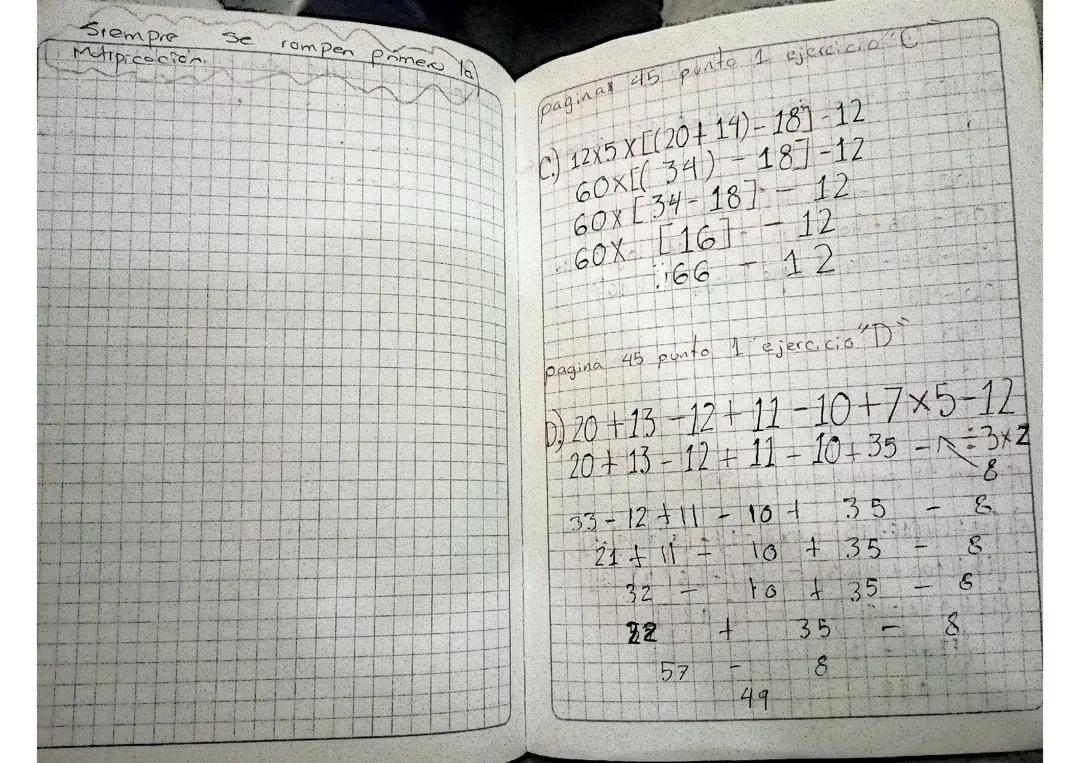 Siempre se rompen primero la
Mutipicacion.
paginas 45 punto 1 ejercicio "C"
C.) 12x5 x[(20+14)-18]-12
60x[( 34) - 18]-12
60x [34-18] - 12
60x [16] - 12
166 - 12
pagina 45 punto 1 ejercicio "D"
D.) 20 +13 -12 + 11 -10 +7 x 5-12
÷3x2
20 + 13 - 12 + 11 - 10 + 35 -
8
33 - 12 + 11 - 10 + 35 - 8
21 + 11 - 10 + 35 - 8
32 - 10 + 35 - 8
22 + 35 - 8
57 - 8
49